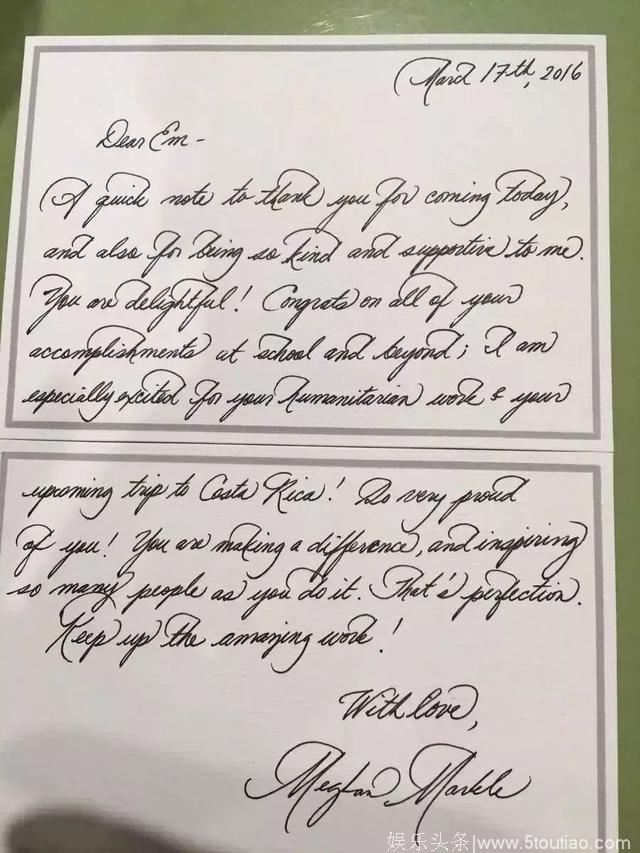 March 17th, 2016
Dear Em -
A quick note to thank you for coming today,
and also for being so kind and supportive to me.
You are delightful! Congrats on all of your
accomplishments at school and beyond; I am
especially excited for your humanitarian work & your
upcoming trip to Costa Rica! So very proud
of you! You are making a difference, and inspiring
so many people as you do it. That's perfection.
Keep up the amazing work!
With love,
Meghan Markle
娱乐头条|www.5toutiao.com